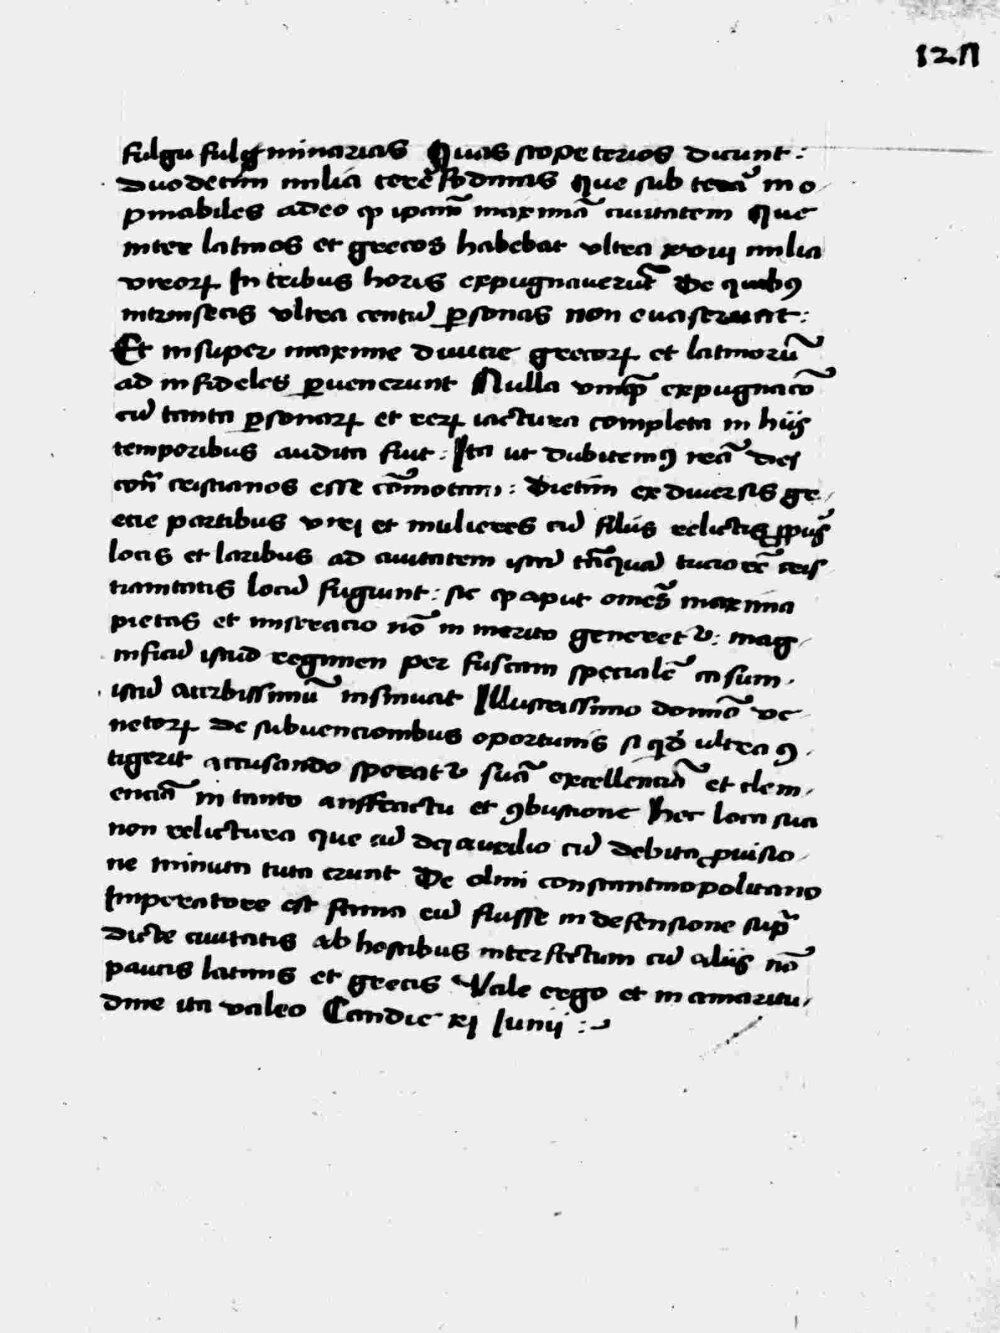 1211
fulgu fulgminarias Quas scopeterios dicunt :
Duodecim milia terre fodinas que sub terã ino
pinabiles adeo qꝫ ipam̃ maximã ciuitatem que
inter latinos et grecos habebat vltra xxviij milia
viroꝝ In tribus horis expugnauerũt De quibꝯ
intrinsecis vltra centũ ꝑsonas non euaserunt :
Et insuper maxime diuicie grecoꝝ et latinorũ
ad infideles ꝑuenerunt Nulla vmqꝫ expugnacõ
cũ tanta ꝑsonaꝝ et reꝝ iactura completa in hijs
temporibus audita fuit : Ita ut dubitemꝯ
cristianos esse : Dietim ex diuersis gre
cie partibus viri et mulieres cũ filijs relictis ꝓpijs
locis et laribus ad ciuitatem istã tñquã tuciorẽ cris
tianitatis locũ fugiunt : sic ꝙ aput omẽs maxima
pietas et miseracio nõ in merito generetᷣ : mag
nificũ istud regimen per fustam specialẽ casum
istũ acerbissimũ insinuat Illustrissimo dominõ ve
netoꝝ de subuencionibus oportunis si qͩ ultra ꝯ
tigerit accusando speratᷣ suã excellenciã et clem
enciã in tanto anffractu et ꝯbustione hec loca sua
non relictura que cũ dei auxilio cũ debita ꝓuisio
ne minuta tuta erunt De olim constantinopolitano
Imperatore est fama eũ fuisse in defensione sup̃
dicte ciuitatis ab hostibus interfectum cũ alijs nõ
paucis latinis et grecis Vale ergo et in amaritu
dine ita valeo Candie xj Iunij :